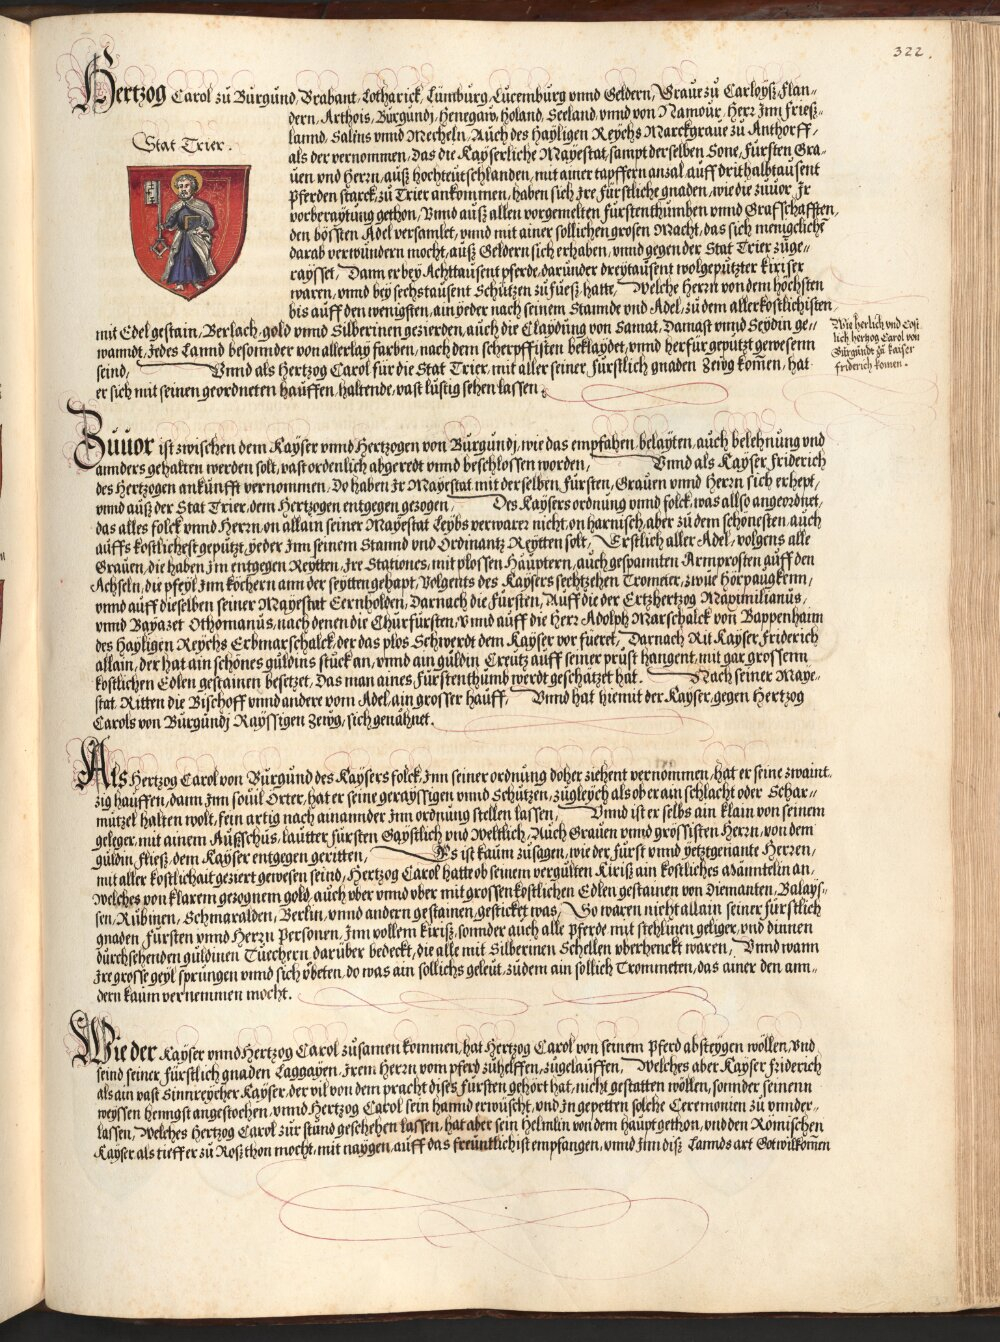 322.
Hertzog Carol zů Burgund, Brabant, Lotharick, Limburg, Lücemburg vnnd Geldern, Graue zů Carloÿß, Flan=
dern, Arthois, Burgundj, Henegaw, Holand, Seeland, vnnd von Namour, Herr Jnn Frieß=
lannd, Salins vnnd Mecheln, Auch des Haÿligen Reÿchs Marckgraue zů Anthorff,
Stat Trier.
als der vernommen, das die Kaÿserliche Maÿestat, sampt derselben Sone, Fürsten Gra=
uen vnd Herrn, auß Hochteutschlanden, mit ainer tapffern anzal auff drithalbtausent
Pferden starck, zů Trier ankommen, haben sich Jre Fürstliche gnaden, wie die zůuor Jr
vorberaÿtung gethon, Vnnd auß allen vorgemelten Fürstenthumben vnnd Grafschafften,
den bössten Adel versamlet, vnnd mit ainer sollichen grosen Macht, das sich menigclich
darab verwundern mocht, auß Geldern sich erhaben, vnnd gegen der Stat Trier zůge=
raÿset, Dann er beÿ Achttausent pferde, darunder dreÿtausent wolgeputzter kiriser
waren, vnnd beÿ sechstausent Schützen zů füeß hatte, Welche Herrn von dem höchsten
bis auff den wenigsten, ain ÿeder nach seinem Stannde vnd Adel, zů dem allerkostlichisten
mit Edelgestain, Berlach, gold vnnd Silberinen gezierden, auch die Claÿdung von Samat, Damast vnnd Seÿdin ge=
wanndt, Jedes Lannd besonnder von allerlaÿ farben, nach dem scherpffisten beklaÿdet, vnnd herfür geputzt gewesenn
seind, Vnnd als Hertzog Carol für die Stat Trier, mit aller seiner Fürstlich gnaden Zeüg komen, hat
er sich mit seinen geordneten hauffen, haltende, vast lustig sehen lassen.
Wie herlich vnd Cost
lich hertzog Carol von
Burgundj zů kaiser
friderich komen.
Zůuor ist zwischen dem Kaÿser vnnd Hertzogen von Burgundj, wie das empfahen, belaÿten, auch belehnung vnd
annders gehalten werden solt, vast ordenlich abgeredt vnnd beschlossen worden, Vnnd als Kaÿser Friderich
des Hertzogen ankunfft vernommen, Do haben Jr Maÿestat mit derselben Fürsten, Grauen vnnd Herrn sich erhept,
vnnd auß der Stat Trier, dem Hertzogen entgegen gezogen, Des Kaÿsers ordnung vnnd folck, was allso angeordnet,
das alles folck vnnd Herrn, on allain seiner Maÿestat Leÿbs verwarer nicht, on harnisch, aber zů dem schönesten auch
auffs kostlichest geputzt, ÿeder Jnn seinem Stannd vnd Ordinantz Reÿtten solt, Erstlich aller Adel, volgens alle
Grauen, die haben Jm entgegen Reÿtten, Jre Stationes, mit plossen Häuptern, auch gespannten Armprosten auff den
Achseln, die pfeÿl Jnn köchern ann der seÿtten gehapt, Volgents des Kaÿsers sechtzehen Trometer, zwue Hörpaugkenn,
vnnd auff dieselben seiner Maÿestat Eernholden, Darnach die Fürsten, Auff die der Ertzhertzog Maximilianus,
vnnd Baÿazet Othomanus, nach denen die Churfürsten, Vnnd auff die Herr Adolph Marschalck von Bappenhaim
des Haÿligen Reÿchs Erbmarschalck, der das plos Schwerdt dem Kaÿser vor fueret, Darnach Rit Kaÿser Friderich
allain, der hat ain schönes güldins stück an, vnnd ain güldin Creütz auff seiner prust hangent, mit gar grossenn
kostlichen Edlen gestainen besetzet, Das man aines Fürstenthumb werdt geschätzet hat. Nach seiner Maÿe=
stat Ritten die Bischoff vnnd andere vom Adel, ain grosser hauff, Vnnd hat hiemit der Kaÿser, gegen Hertzog
Carols von Burgundj Raÿssigen Zeüg, sich genähnet.
Als Hertzog Carol von Burgund des Kaÿsers folck, Jnn seiner ordnung doher ziehent vernommen, hat er seine zwaint
zig hauffen, dann Jnn souil Örter, hat er seine geraÿssigen vnnd Schützen, zůgleÿch als ob er ain schlacht oder Schar=
mützel halten wolt, fein artig nach ainannder Jnn ordnung stellen lassen, Vnnd ist er selbs ain klain von seinem
geleger, mit ainem Außschus, lautter Fürsten Gaÿstlich vnd Weltlich, Auch Grauen vnnd grossisten Herrn, von dem
güldin Fließ, dem Kaÿser entgegen geritten, Es ist kaum zůsagen, wie der Fürst vnnd ÿetztgenante Herren,
mit aller kostlichait geziert gewesen seind, Hertzog Carol hatte ob seinem vergulten Kiriß ain kostliches Männtelin an,
Welches von klarem gezognem gold, auch vber vnnd vber mit grossen kostlichen Edlen gestainen von Diemanten, Balaÿs=
sen, Rubinen, Schmaralden, Berlin, vnnd andern gestainen, gesticket was, So waren nicht allain seiner Fürstlich
gnaden Fürsten vnnd Herrn Personen, Jnn vollem kiriß, sonnder auch alle Pferde mit stehlinen geliger, vnd dinnen
durchsehenden güldinen Tüechern darüber bedeckt, die alle mit Silberinen Schellen vberhenckt waren, Vnnd wann
Jre grosse geÿl sprungen vnnd sich vbeten, do was ain sollichs geleüt, zůdem ain sollich Trommeten, das ainer den ann=
dern kaum vernemmen mocht.
Wie der Kaÿser vnnd Hertzog Carol zůsamen kommen, hat Hertzog Carol von seinem Pferd absteÿgen wöllen, Vnd
seind seiner Fürstlich gnaden Laggaÿen, Jrem Herrn vom pferd zůhelffen, zůgelauffen, Welches aber Kaÿser Friderich
als ain vast Sinnreÿcher Kaÿser, der vil von dem pracht dises Fürsten gehört hat, nicht gestatten wöllen, sonnder seinenn
weÿssen henngst angestochen, vnnd Hertzog Carol sein hannd erwuscht, vnd Jn gepetten solche Ceremonien zů vnnder=
lassen, Welches Hertzog Carol zůr stund geschehen lassen, hat aber sein Helmlin von dem haupt gethon, vnd den Römischen
Kaÿser als tieff er zů Roß thon mocht, mit naÿgen, auff das freüntlichist empfangen, vnnd Jnn diß Lannds art Gotwilkommen